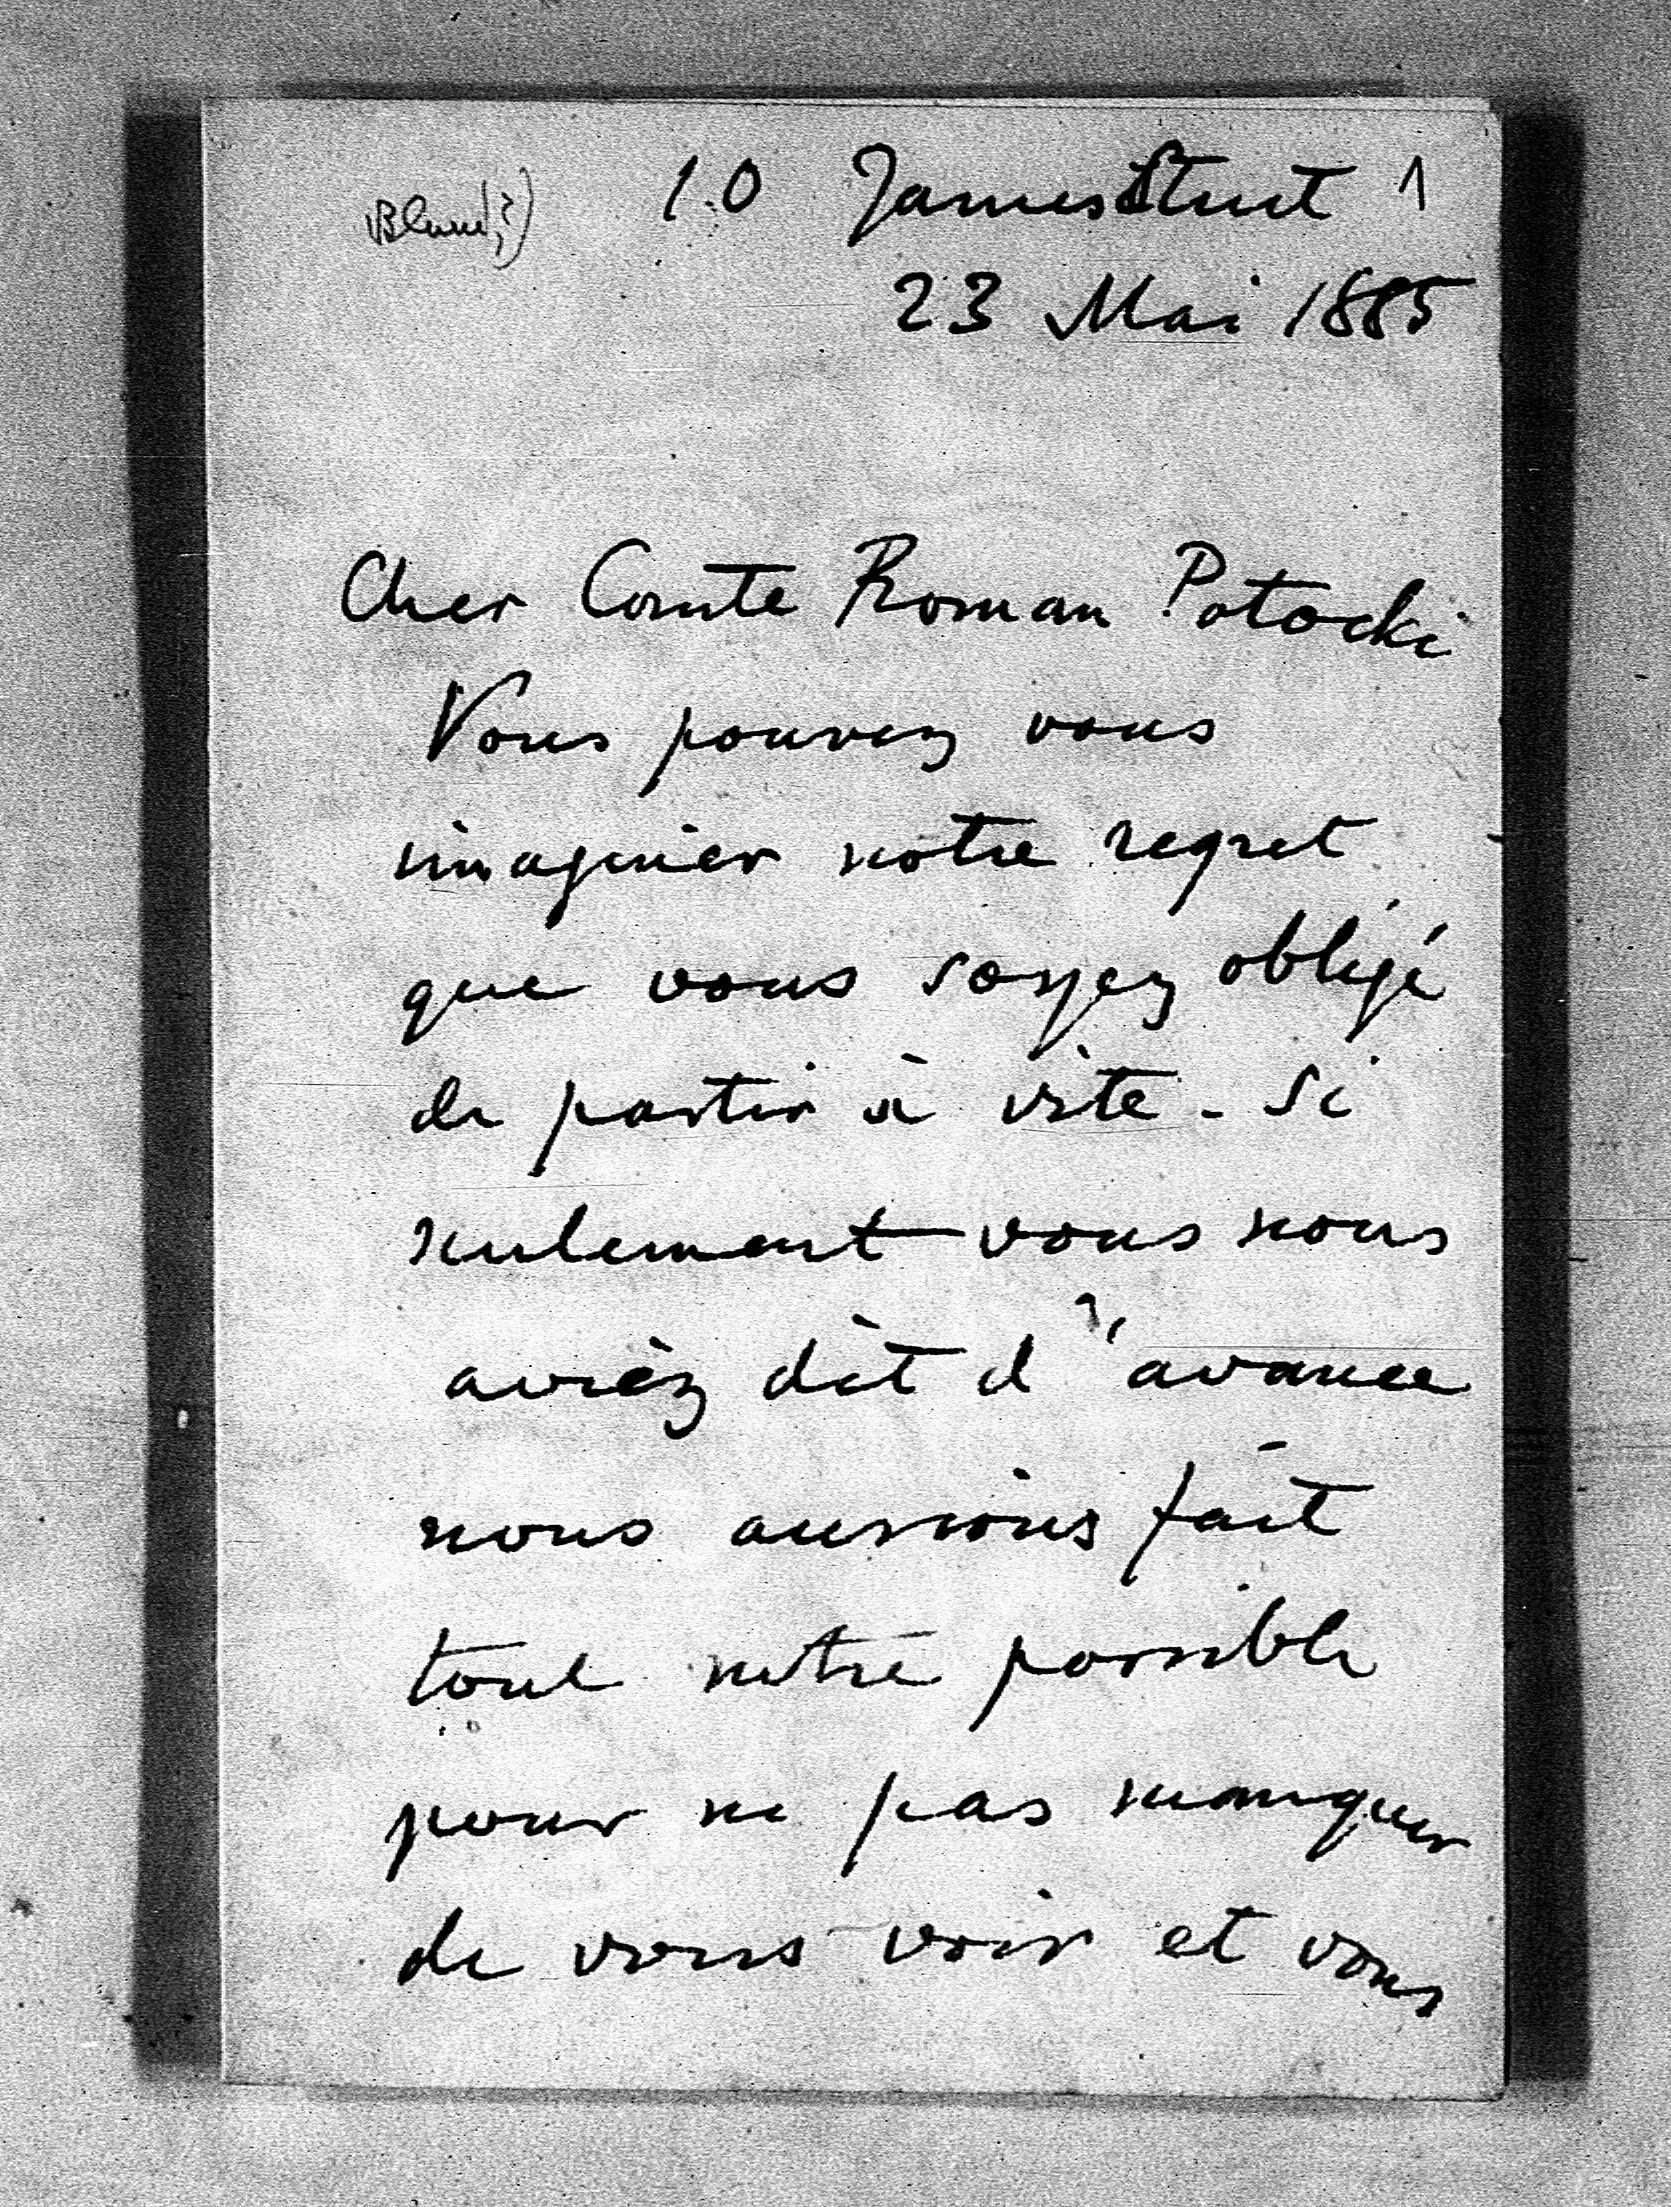 10 James Street 1
Blunt(?)
23 Mai 1885
Cher Comte Roman Potocki
Vous pouvez vous
imaginer notre regret
que vous soyez obligé
de partir si vite - Si
seulement vous nous
aviéz dit d'avance
nous aurions fait
tout notre possible
pour ne pas manquer
de vous voir et vous